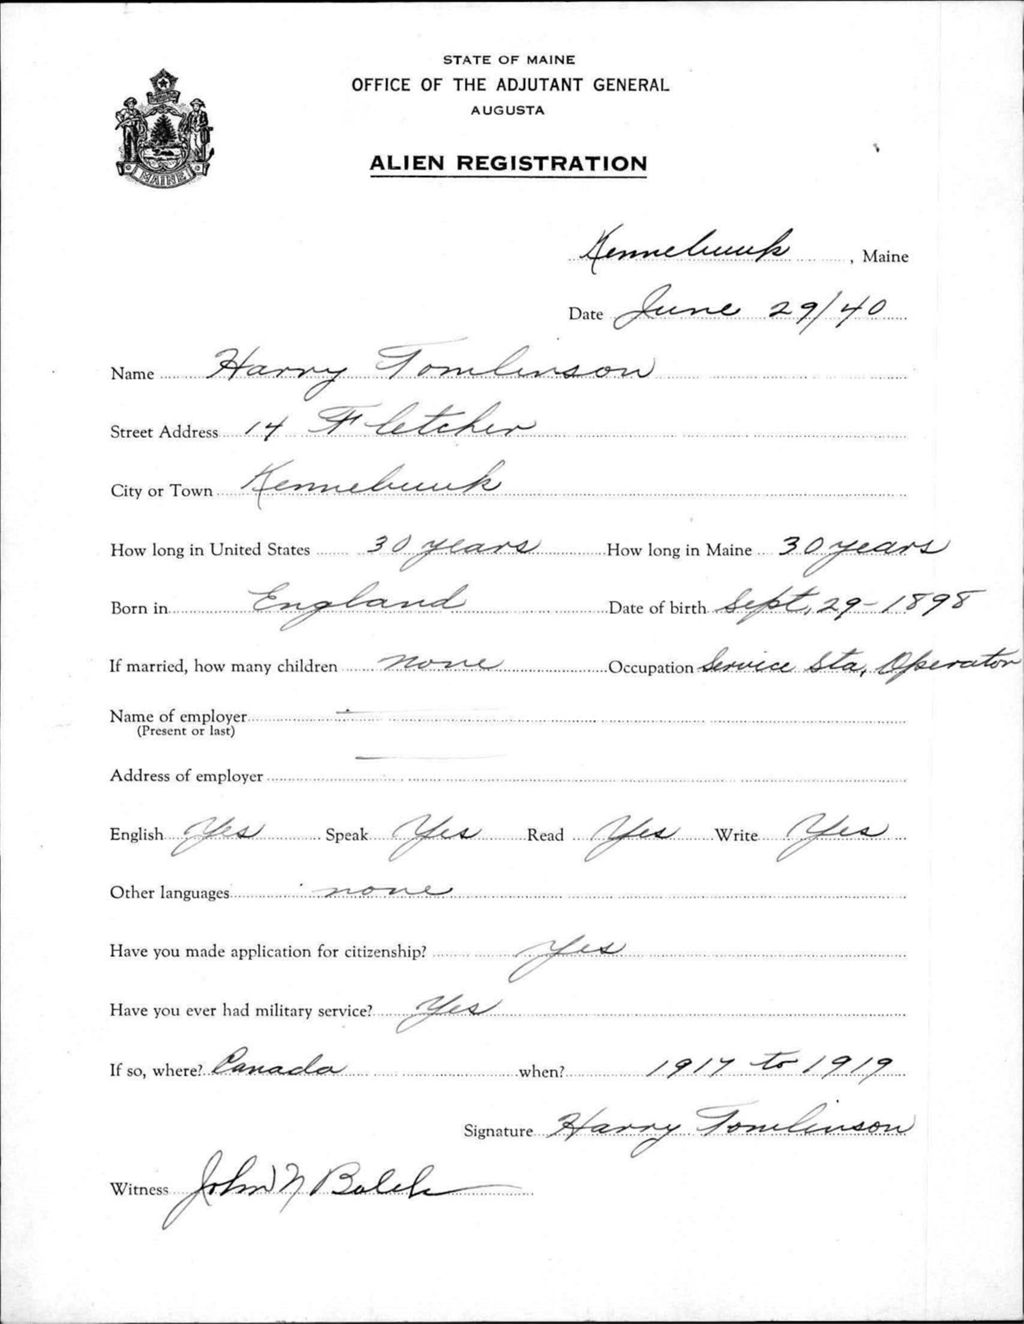 STATE OF MAINE
OFFICE OF THE ADJUTANT GENERAL
AUGUSTA
ALIEN REGISTRATION
MAINE
Kennebunk, Maine
Date June 29/40
Name Harry Tomlinson
Street Address 14 Fletcher
City or Town Kennebunk
How long in United States 30 years How long in Maine 30 years
Born in England Date of birth Sept. 29-1898
If married, how many children none Occupation Service Sta. Operator
Name of employer
(Present or last)
Address of employer
English Yes Speak Yes Read Yes Write Yes
Other languages none
Have you made application for citizenship? Yes
Have you ever had military service? Yes
If so, where? Canada when? 1917 to 1919
Signature Harry Tomlinson
Witness John N Balch